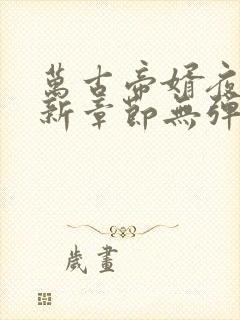 萬古帝婿夜
新章節無彈
歲畫